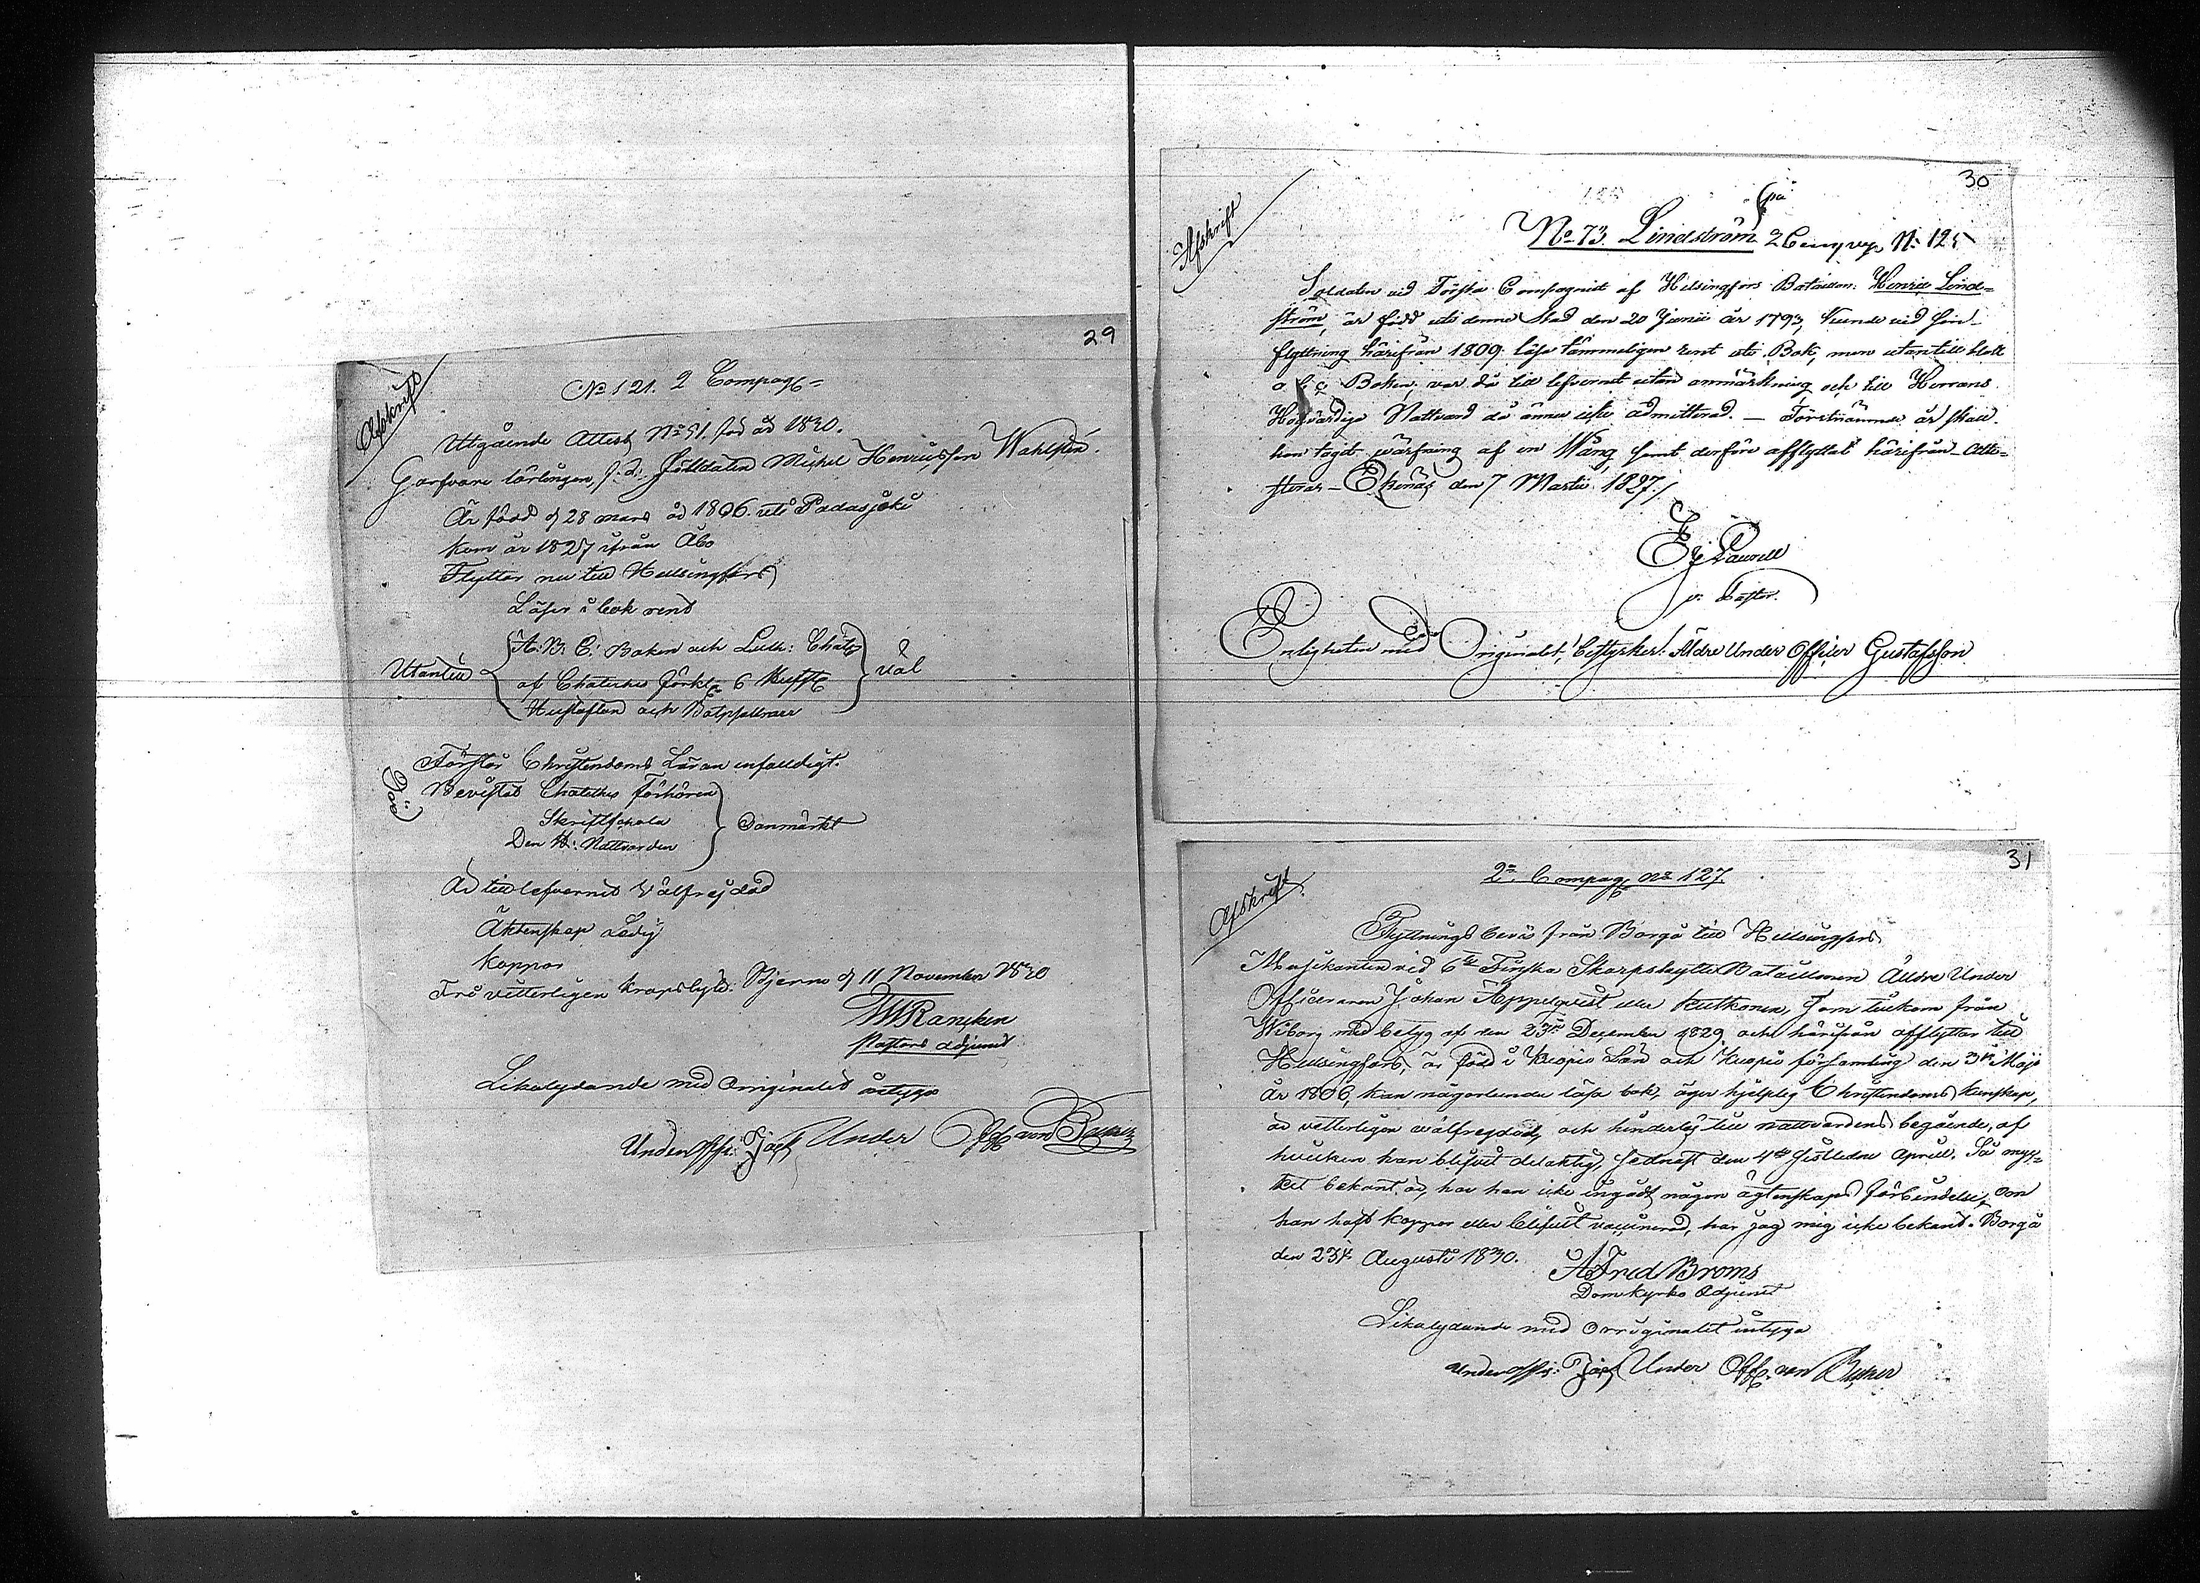 29
Afskrift
No 121. 2 Compag
Utgående Attest No 51. för år 1830.
Garfvare lärlingen, Solldaten Michel Henricsson Wahlsten.
Är född d 28 mars år 1806 uti Padasjoki
kom år 1827 ifrån Åbo
Flyttar nu till Hellsingfors
Läser i bok rent
Utantill
A: B: C: Boken och Luth: Chat
af Chateches förkl 6
Hustaflan och Botpsallmar
väl
Förstår Christendoms Läran enfalldigt.
Bevistat Chateches förhören
Skriftschola
Den H: Nattvarden
Oanmärkt
Är till lefvernet välfrejdad
Äktenskap Ledig
Koppor
Frö vetterligen kropslyte. Bjerno d 11 November 1830
Rancken
Pastors Adjunct
Likalydande med Originalet intyga
Under Off: Under Off von
30
Afskrift
på
No 73. Lindström 2 Comp No 125
Soldaten vid Första Compagniet af Helsingfors Bataillon: Henric Lind=
ström, är född uti denna Stad den 20 Junii år 1793, kunde vid sin
flyttning härifrån 1809. läsa tämmeligen rent uti Bok, men utantill blott
a b c Boken, var då till lefvernet utan anmärkning och till Herrans
Högvärdiga Nattvard då ännu icke admitterad. — Förstnämnde år skall
han tagit värfning af en Wång, samt derföre afflyttat härifrån Atte=
steras – Ekenäs den 7 Martii 1827./.
Laurell
v: Pastor.
Enligheten med Originalet, bestyrker: Äldre Under Officer Gustafsson
31
Afskrift
2a Compag No 127.
Flyttnings bevis från Borgå till Hellsingfors
Musikanten vid 6te Finska Skarpskytte Bataillonen Äldre Under
Officeraren Johan Äppelqvist eller Kutkonen, som tillkom från
Wiborg med betyg af den 23dn December 1829 och härifrån afflyttar till
Hellsingfors, är född i Kuopio Län och Kuopio församling den 3dn Maji
år 1806, kan någorlunda läsa bok, äger hjelplig Christendoms kunskap,
är vetterligen välfrejdad, och hinderlös till nattvardens begående, af
hvilken han blifvit delaktig, sednast den 4de sistledne April. Så myc=
ket bekant är, har han icke ingått någon ägtenskaps förbindelse, om
han haft koppor eller blifvit vaccinerad, har jag mig icke bekant. Borgå
den 23dn Augusti 1830.
Alfred Broms
Domkyrko Adjunct
Likalydande med Orriginalet intyga
Under Off: Under Off. von